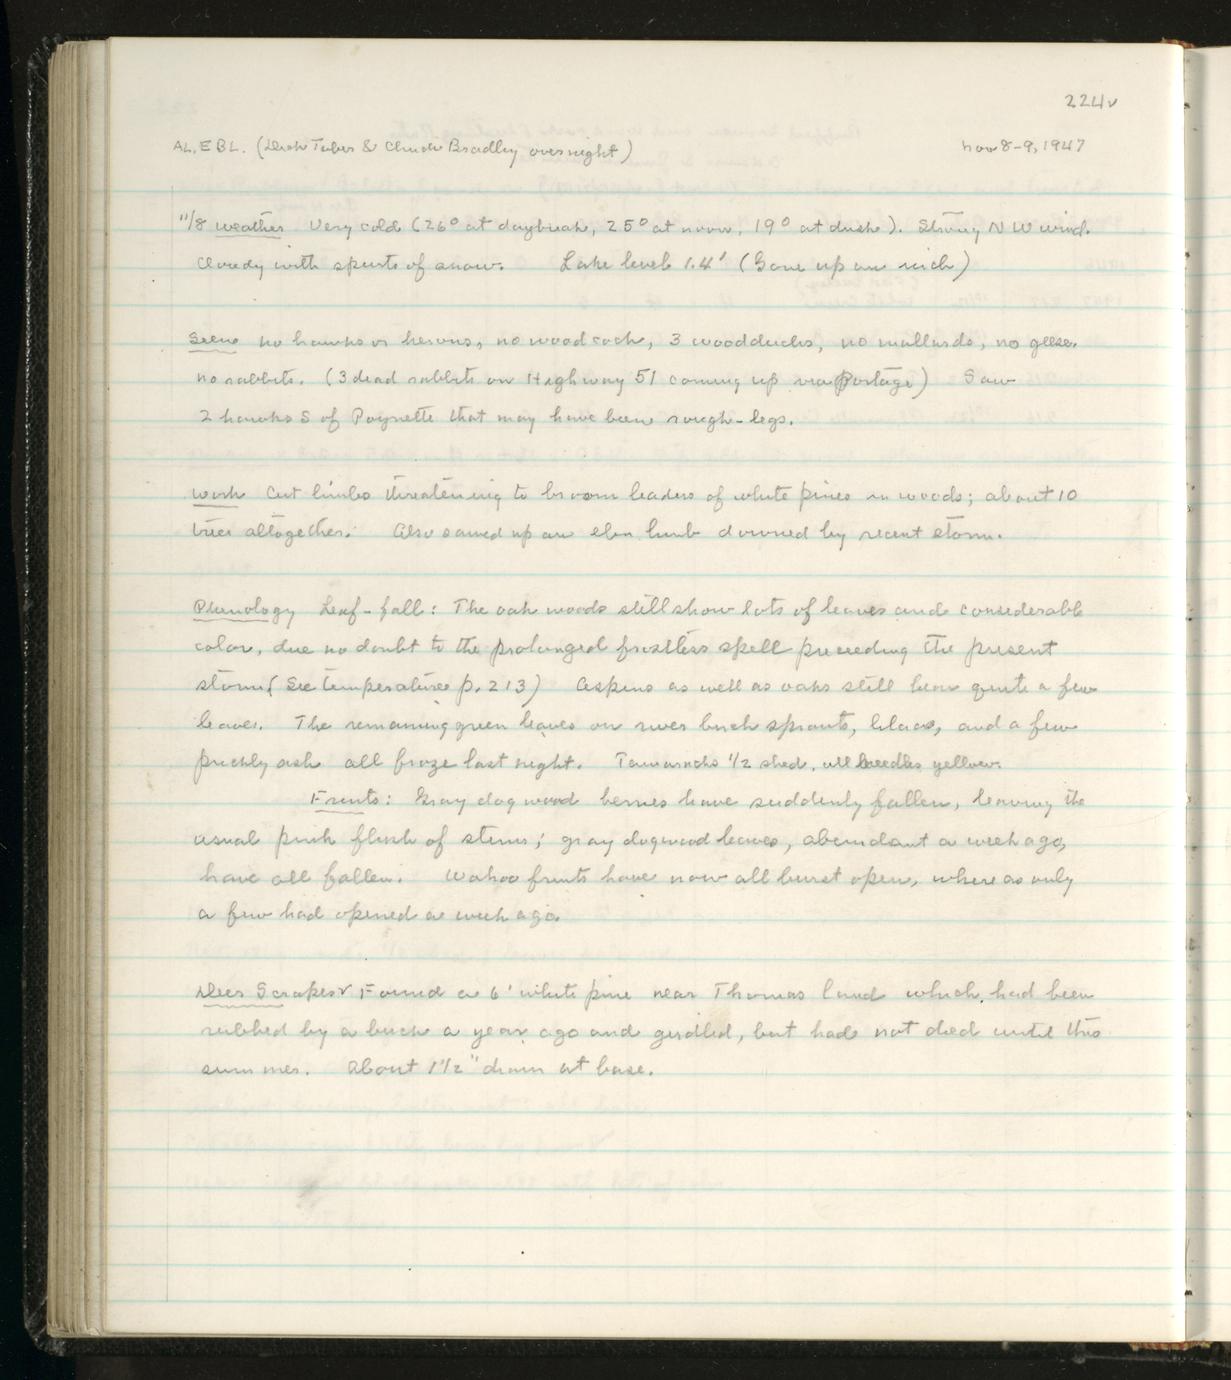 224v
AL, EBL. (Dick Taber & Chuck Bradley overnight) Nov 8-9, 1947
11/8 weather Very cold (26° at daybreak, 25° at noon, 19° at dusk). Strong NW wind.
Cloudy with spurts of snow. Lake level 1.4' (Gone up an inch)
Seen no hawks or herons, no woodcock, 3 woodducks, no mallards, no geese.
no rabbits. (3 dead rabbits on Highway 51 coming up via Portage) Saw
2 hawks S of Poynette that may have been rough-legs.
Work Cut limbs threatening to broom leaders of white pines in woods; about 10
trees altogether. Also sawed up an elm limb downed by recent storm.
Phenology Leaf-fall: The oak woods still show lots of leaves and considerable
color, due no doubt to the prolonged frostless spell preceeding the present
storm (See temperatures p. 213) Aspens as well as oaks still bear quite a few
leaves. The remaining green leaves on river birch sprouts, lilacs, and a few
prickly ash all froze last night. Tamaracks 1/2 shed, all needles yellow.
Fruits: Gray dogwood berries have suddenly fallen, leaving the
usual pink flush of stems; gray dogwood leaves, abundant a week ago,
have all fallen. Wahoo fruits have now all burst open, where as only
a few had opened a week ago.
Deer Scrapes Found a 6' white pine near Thomas land which had been
rubbed by a buck a year ago and girdled, but had not died until this
summer. About 1 1/2" diam at base.